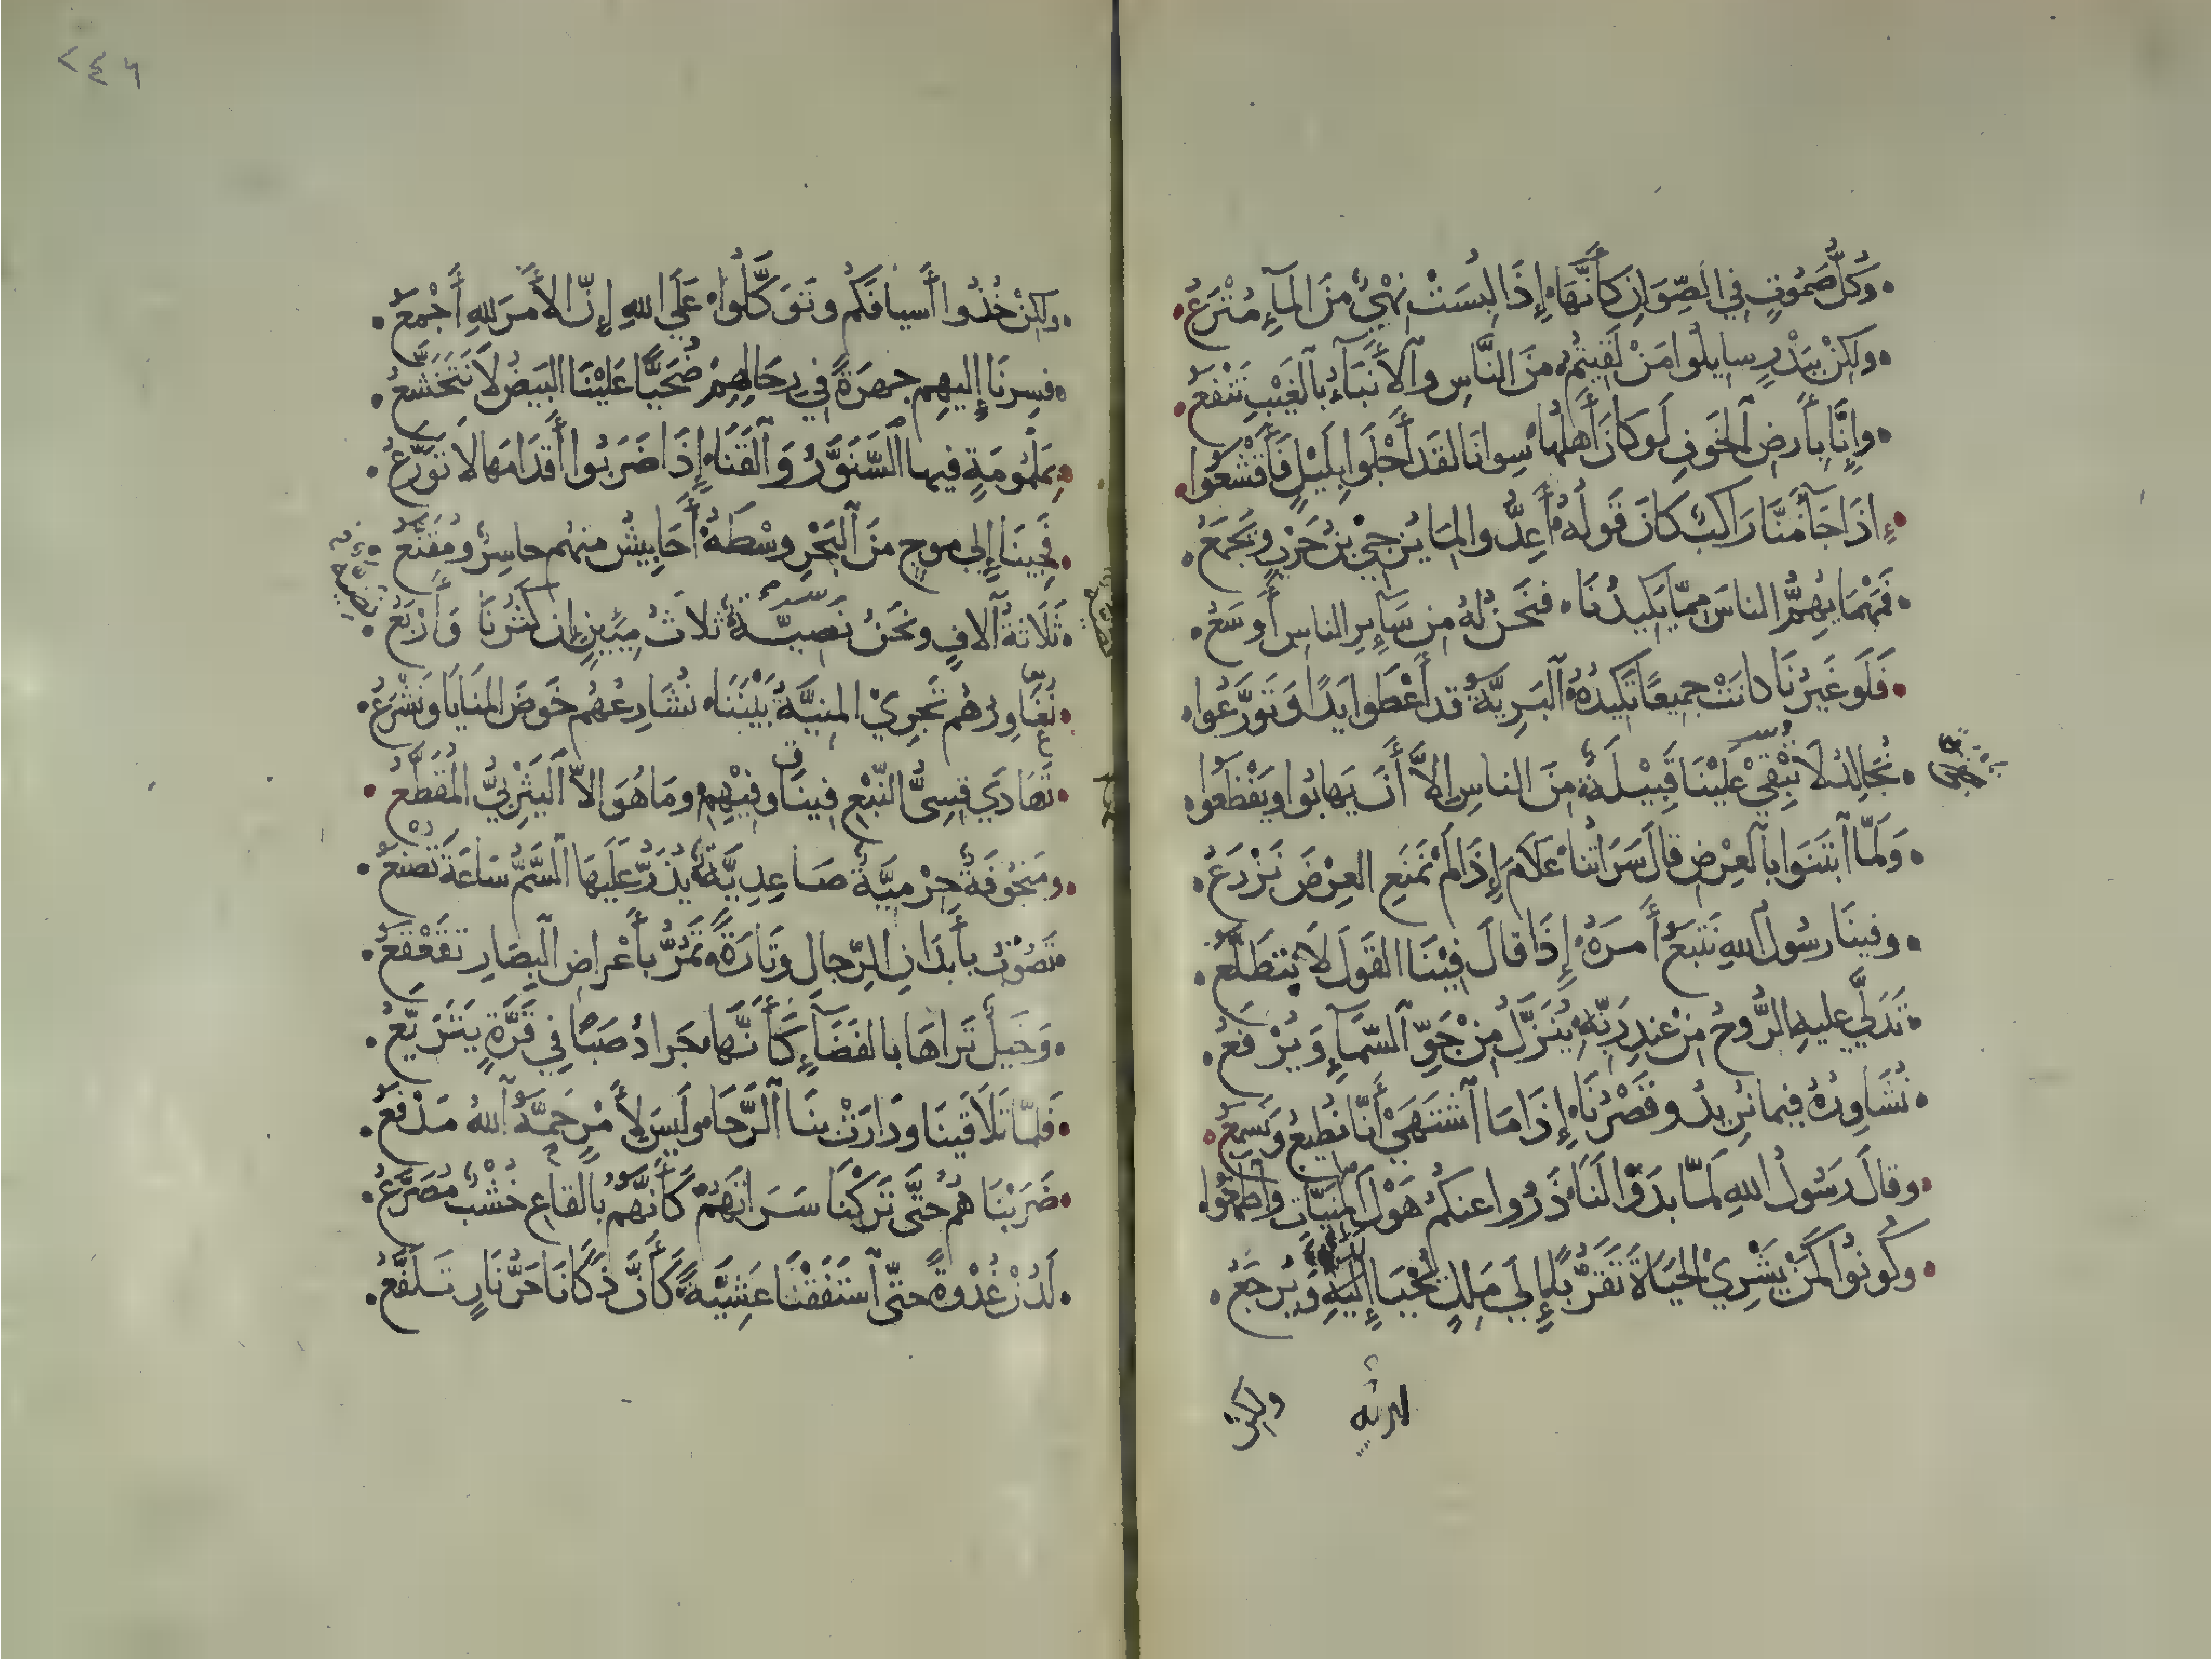 وَكُلُّ صَمُوتٍ فِي الصِّوَانِ كَأَنَّهَا إِذَا لُبِسَتْ نِهْيٌ مِنَ الْمَآءِ مُتْرَعُ
ولكِنْ بِبَدْرٍ سايلُوا مَنْ لَقِيتُمُ مِنَ النَّاسِ والأَنْبَآءُ بالغَيْبِ تَنْفَعُ
وإِنَّا بِأَرضِ الخَوفِ لَو كانَ أَهلُها سِوانَا لقَد أَجْلَوا بِلَيْلٍ فَأَقْشَعُوا
إِذَا جَآ مِنَّا رَاكِبٌ كَانَ قَولُهُ أَعِدُّوا لِمَا يُزْجِي بْنُ حَرْبٍ ويَجْمَعُ
فَمَهْمَا يُهِمُّ الناسَ مِمَّا يَكِيدُنَا فنَحنُ لَهُ مِن سَآيِرِ الناسِ أَوسَعُ
فَلَو غَيرُنَا كانَتْ جميعًا تَكِيدُهُ البَرِيَّةُ قد أَعْطَوا يَدًا وَتَوَزَّعُوا
نُجَالِدُ لَا تَبْقَي عَلَيْنَا قَبِيْلَةٌ مِنَ الناسِ إِلاَّ أَنْ يَهابُوا ويَفْظَعُوا
وَلَمَّا ابْتَنَوا بالعِرْضِ قالَ سَرَاتُنا عَلاَمَ إِذَا لَمْ نَمْنَعِ العِرْضَ نَزْرَعُ
وفينَا رسُولُ اللهِ نَتْبَعُ أَمرَهُ إِذَا قالَ فِيْنَا القَولَ لَا يُتَطَلَّعُ
تَدَلَّي عليهِ الرُّوحُ مِنْ عِندِ رَبِّهِ يُنَزَّلُ مِنْ جَوِّ السَّمآءِ وَيُرْفَعُ
نُشَاوِرُهُ فيما نُرِيدُ وقَصْرُنَا إِذَا مَا اشْتَهَي أَنَّا نُطِيعُ ونَسمعُ
وقالَ رَسُولُ اللهِ لَمَّا بَدَوْا لَنَا ذَرُوا عنكُمُ هَوْلَ المَنِيَّاتِ واطْمَعُوا
وكُونُوا كَمَنْ يَشْرِيْ الحَيَاةَ تَقَرُّبًا إِلَي مَلِكٍ يُحْيَا إِلَيْهِ وَيُرجَعُ
ولكِنْ
٢٤٦
ولكِنْ خُذُوا أَسيافَكُم وتَوَكَّلُوا عَلَي اللهِ إِنَّ الأَمرَ للهِ أَجْمَعُ
فسِرنَا إِليهِم جهرَةً في رِحَالِهِمْ ضُحَيًّا عَلَيْنَا البَيضُ لَا نَتَخَشَّعُ
بِمَلْمُومَةٍ فيها السَّنَوَّرُ وَالْقَنَا إِذَا ضَرَبُوا أَقدَامَها لا تَوَرَّعُ
فَجِينَا إِلي مَوجٍ مِنَ البَحْرِ وسْطَهُ أَحَابِيشُ منهُم حاسِرٌ ومُقَنَّعُ
ثَلَاثَةُ آلافٍ ونَحْنُ نَصِيَّةٌ ثلاثُ مِيِينٍ إِن كَثُرنَا وَأَرْبَعُ
نُغَاوِرُهُم تَجرِيْ المنِيَّةُ بَيْنَنَا نُشَارِعُهُم حَوضَ المَنَايَا ونَشْرَعُ
تَهَادَي قِسِيُّ النَّبْعِ فينَا وفِيْهِمُ ومَا هُوَ إِلاَّ اليَثْرِبِيُّ المُقَطَّعُ
ومَنْجُوفَةٌ حِرْمِيَّةٌ صَاعِدِيَّةٌ يُذَرُّ عَلَيهَا السَّمُّ سَاعَةَ تُصْنَعُ
تَصُوبُ بأَبدَانِ الرِّجالِ وتَارَةً تَمُرُّ بأَعْراضِ البِصَارِ تَقَعْقَعُ
وَخَيلٌ تَراهَا بالفَضَآءِ كَأَنَّها جَرادُ صَبًا فِي قَرَّةٍ يَتَرَيَّعُ
فَلمَّا تَلَاقَينَا ودَارَتْ بنَا الرَّحَا ولَيسَ لأَمْرٍ حَمَّهُ اللهُ مَدْفَعُ
ضَرَبْنَاهُمُ حتَّي تَرَكْنَا سَرَاتَهُمْ كَأَنَّهُمُ بالقاعِ خُشْبٌ مُصَرَّعُ
لَدُنْ غُدْوةً حتَّي استَفَقْنَا عَشِيَّةً كَأَنَّ ذَكَانَا حَرُّ نَارٍ تَلَفَّعُ